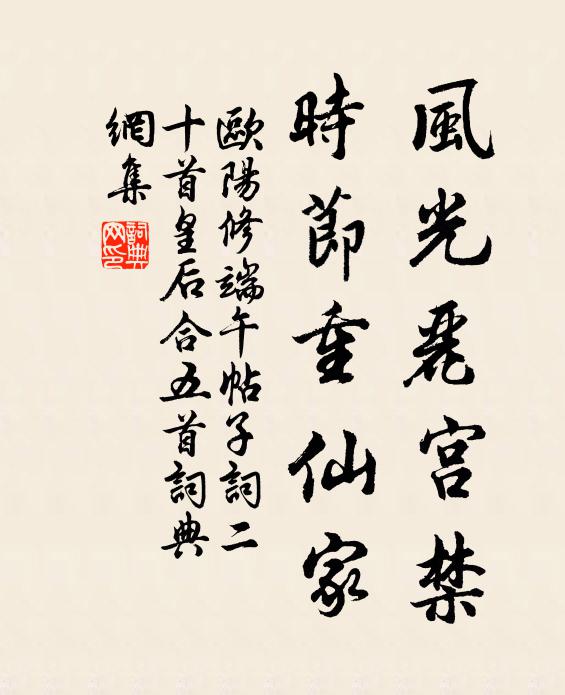 風光麗宮禁
時節重仙家
歐陽修端午帖子詞二
十首皇后合五首詞典
網集
詞典
网印